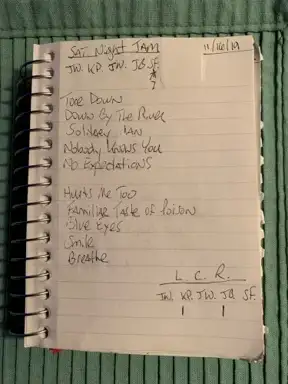 SAT. Night JAM 11/16/19
JW. KP. JW. JB. SF.
?
Tore Down
Down By The River
Solitary Man
Nobody Knows You
No Expectations
Hurts Me Too
Familiar Taste of Poison
Blue Eyes
Smile
Breathe
L. C. R.
JW. KP. JW. JB. SF.
| |